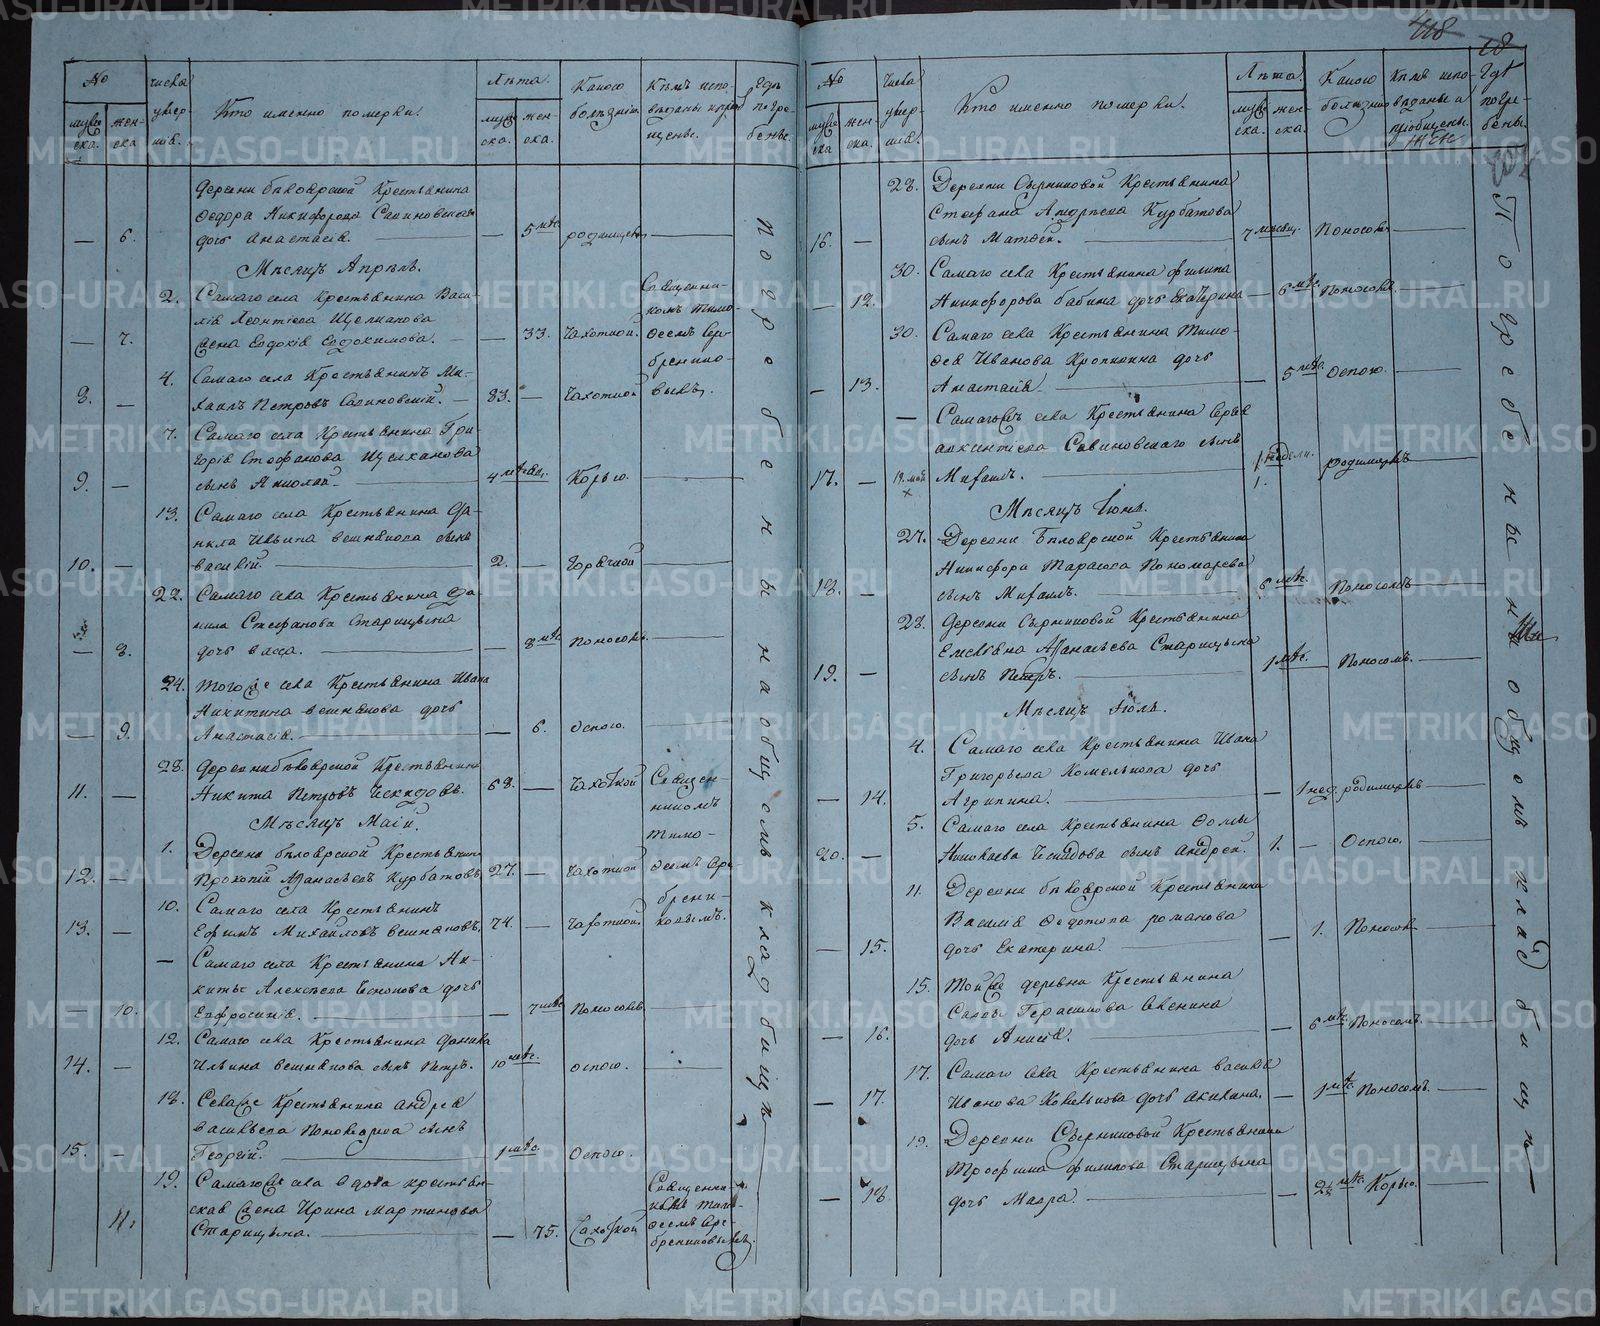 №
числа умер-шів.
Кто именно померли.
Лѣта.
Какою болѣзнію.
Кѣмъ испо-вѣданы и приоб-щены.
Гдѣ погре-бены.
мужес-ска.
жен-ска
муж-ска.
жен-ска.
Деревни бѣлоярской Крестьянина
Ѳедора Никифорова Савиновскаго
— 6. дочь Анастасія. — 5 мѣс. родимцемъ
Мѣсяцъ Апрѣль.
2. Самаго села Крестьянина Васи-
лія Леонтіева Щелканова
— 7. жена Евдокія Евдокимова. — 33. Чахоткой.
Священни-
комъ Тимо-
ѳеемъ Сере-
бренико-
вымъ.
4. Самаго села Крестьянинъ Ми-
8. — хаилъ Петровъ Савиновскій. 83. — Чахоткой
7. Самаго села Крестьянина Гри-
горія Стефанова Щелканова
9. — сынъ Николай. 4 мѣсяц. Корью.
13. Самаго села Крестьянина Да-
нила Ильина вешнякова сынъ
10. — василій. 2. — Горячкой
22. Самаго села Крестьянина Да-
нила Стефанова Старицына
— 8. дочь васса. — 8 мѣс. Поносомъ.
24. Того же села Крестьянина Ивана
Никитина вешнякова дочь
— 9. Анастасія. — 6. Оспою.
28. Деревни бѣлоярской Крестьянинъ
11. — Никита Петровъ Чскидовъ. 68. — Чахоткой
Священ-
никомъ
Тимо-
ѳеемъ Сере-
брени-
ковымъ.
Мѣсяцъ Маій.
1. Деревни бѣлоярской Крестьянинъ
12. — Прокопій Аѳанасьевъ Курбатовъ 27. — Чахоткой
10. Самаго села Крестьянинъ
13. — Ефимъ Михайловъ вешняковъ. 74. — Чахоткой.
— Самаго села Крестьянина Ни-
киты Алексѣева дочь
— 10. Евфросинія. — 7 мѣс. Поносомъ
12. Самаго села Крестьянина Данила
14. — Ильина вешнякова сынъ Петръ. 10 мѣс. оспою.
18. Села же Крестьянина андрея
васильева сынъ
15. — Георгій. 1 мѣс. Оспою.
19. Самаго же села вдова крестьян-
ская жена Ирина Мартинова
11. Старицына. — 75. Чахоткой
Священни-
комъ Тимо-
ѳеемъ Сере-
брениковымъ.
Погребены на общемъ кладбищѣ
418
18
№
числа умер-шів.
Кто именно померли.
Лѣта.
Какою болѣзнію
Кѣмъ испо-вѣданы и пріобщены.
Гдѣ погре-бены.
мужес-ска
жен-ска.
муже-ска.
жен-ска.
28. Деревни Сырниковой Крестьянина
Стефана Андреева Курбатова
16. — сынъ Матѳей. 7 мѣсяц. Поносомъ
30. Самаго села Крестьянина филипа
— 12. Никифорова бабина дочь Екатерина — 6 мѣс. Поносомъ.
30. Самаго села Крестьянина Тимо-
ѳея Иванова Кропинина дочь
— 13. Анастасія — 5 мѣс. Оспою.
— Самаго же села Крестьянина Сергѣя
алксентіева Савиновскаго сынъ
17. — 19. май Михаилъ. 1 недѣли. родимцемъ
×
1.
Мѣсяцъ Іюнь.
27. Деревни Бѣлоярской Крестьянина
Никифора Тарасова Пономарева
18. — сынъ Михаилъ. 6 мѣс. Поносомъ
28. Деревни Сырниковой Крестьянина
Емельяна Аѳанасьева Старицына
19. — сынъ Петръ. 1 мѣс. Поносомъ.
Мѣсяцъ Іюль.
4. Самаго села Крестьянина Ивана
Григорьева Комельскова дочь
— 14. Агрипина. — 1 нед. родимцемъ
5. Самаго села Крестьянина Ѳомы
20. — Николаева Чскидова сынъ Андрей. 1. — Оспою.
11. Деревни бѣлоярской Крестьянина
Василія Ѳедотова романова
— 15. дочь Екатерина. — 1. Поносомъ
15. Той же деревни Крестьянина
Савы Герасимова Овенина
— 16. дочь Анисія. — 6 мѣс. Поносомъ.
17. Самаго села Крестьянина василія
— 17. Иванова дочь акилина. — 1 мѣс. Поносомъ.
19. Деревни Сырниковой Крестьянина
Трофима филипова Старицына
— 18. дочь Мавра. — 2½ мѣс. Корью.
Погребены на общемъ кладбищѣ
METRIKI.GASO-URAL.RU